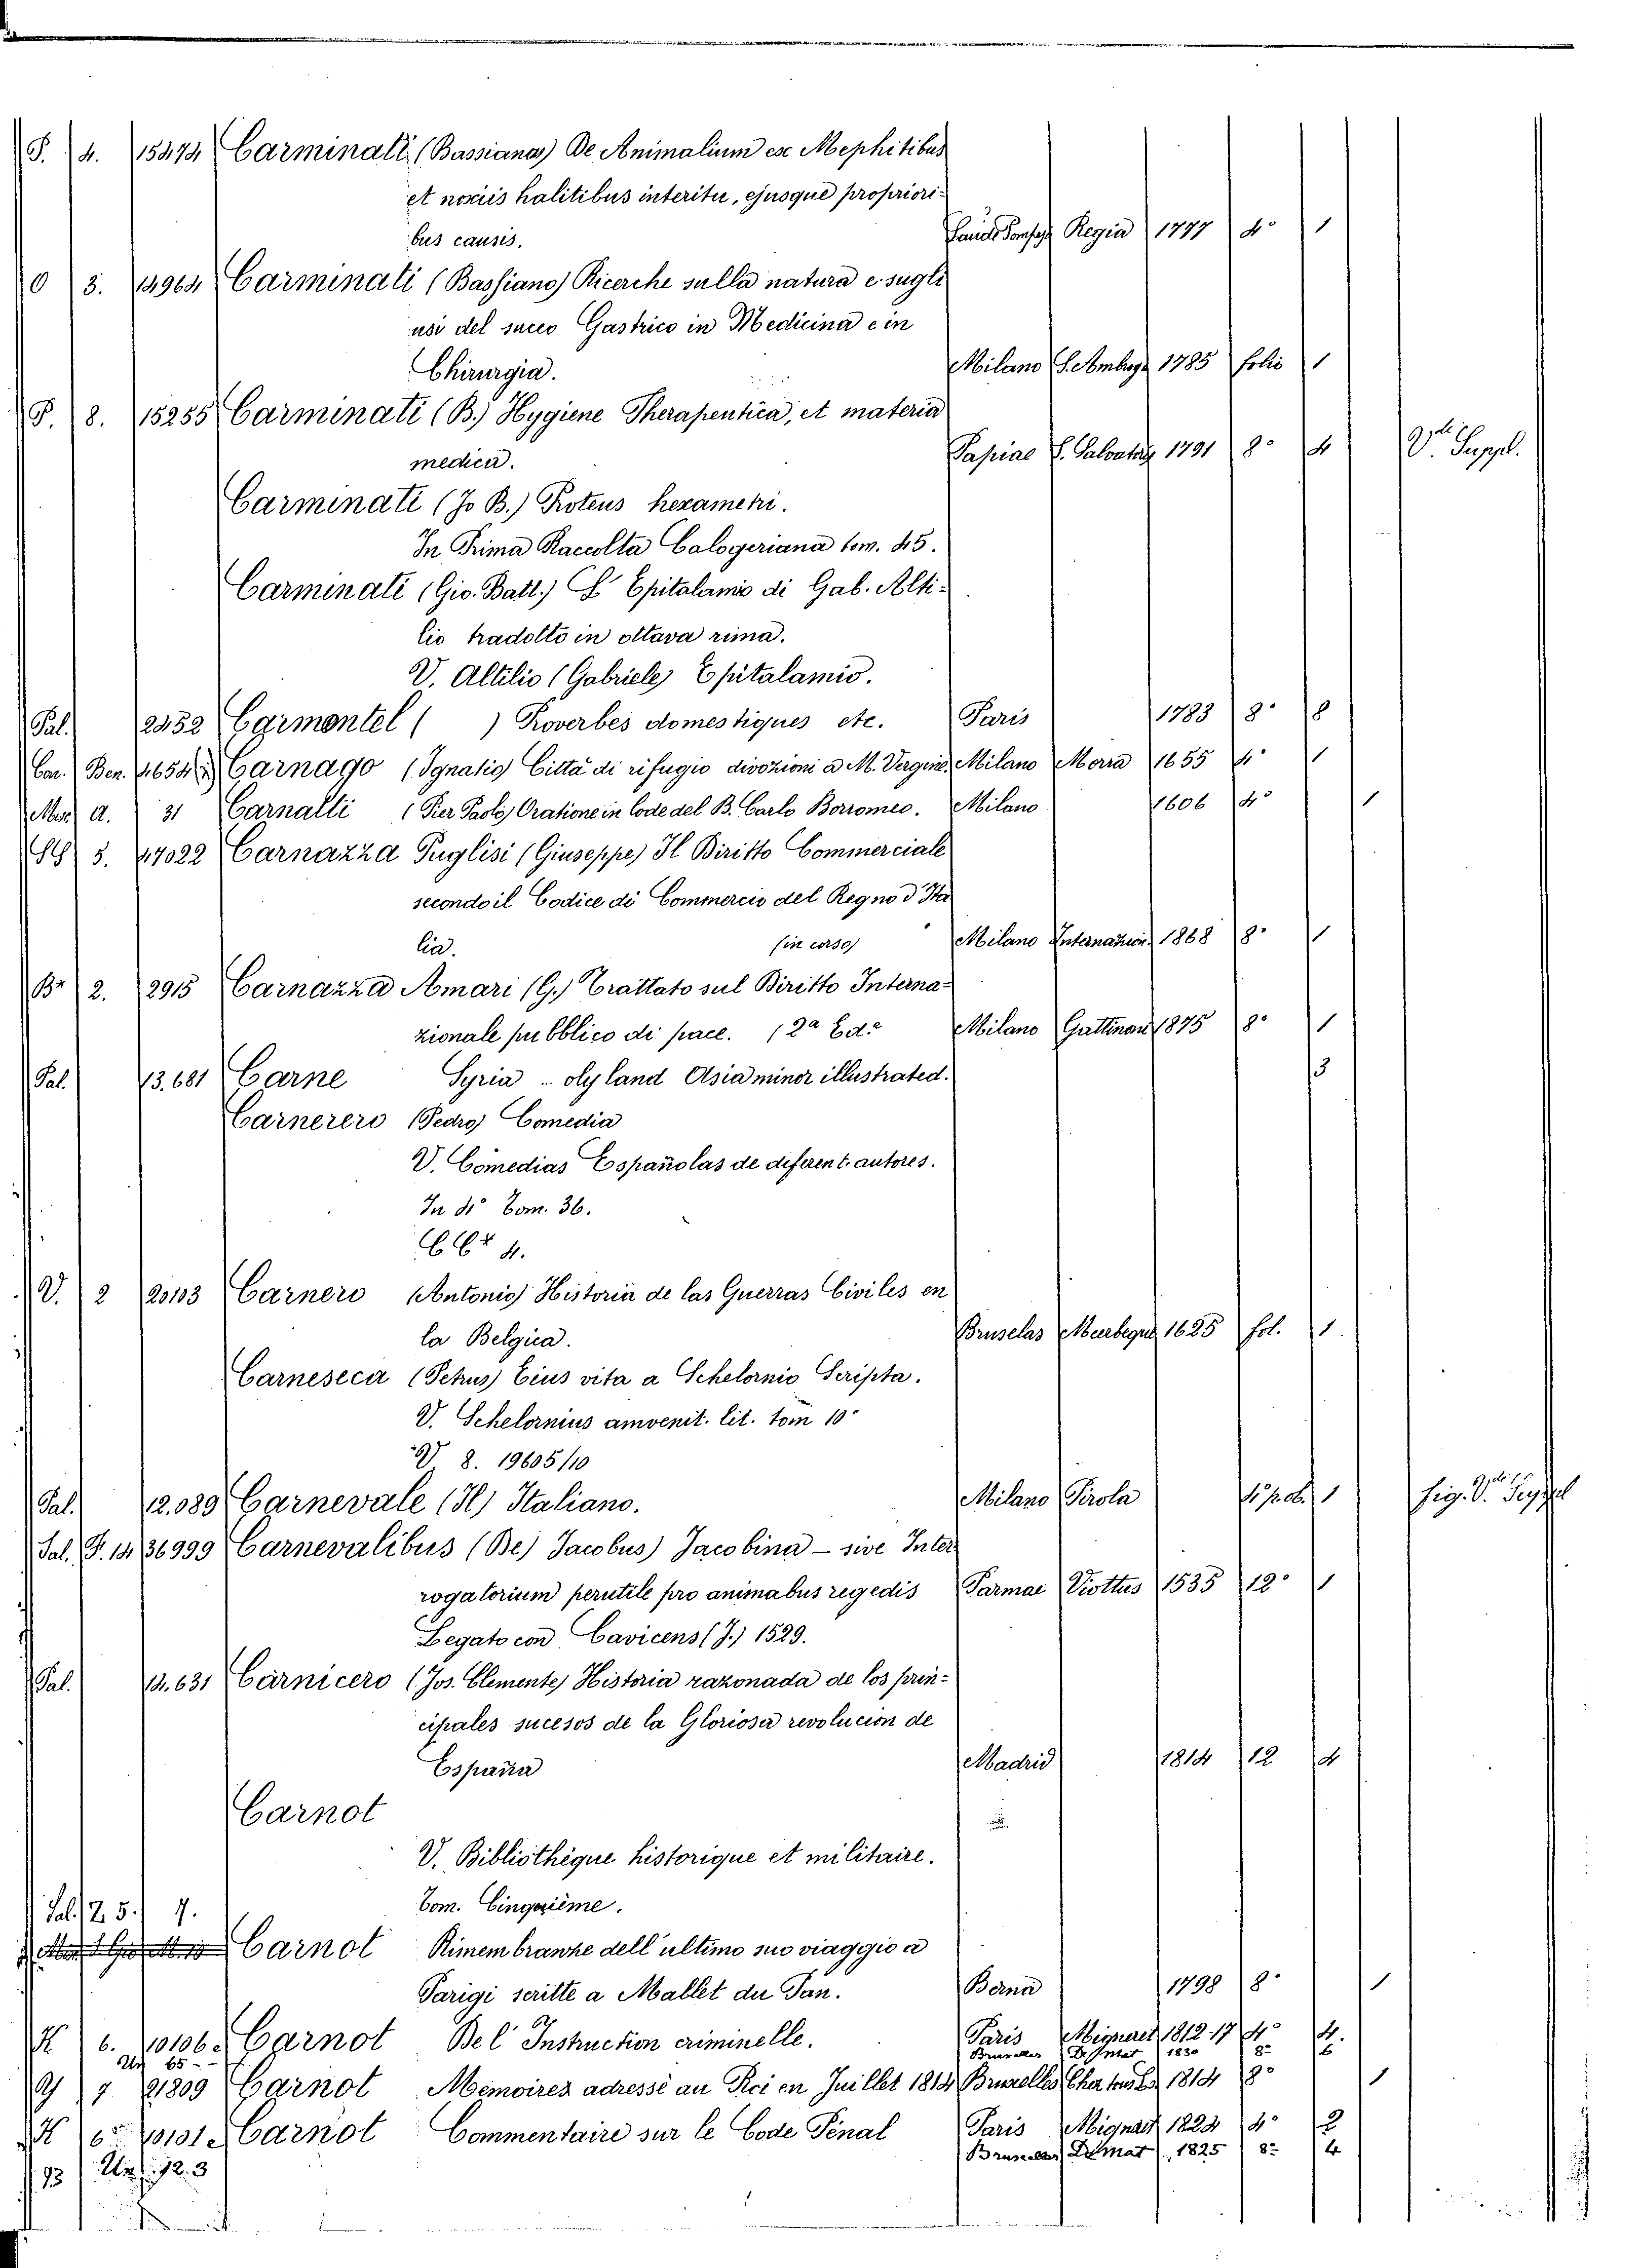 S. 4. 15474 Carminati (Bassianas) De Animalium ex Mephitibus
et noxiis halitibus interitu, ejusque propriori-
bus causis. Regia 1777 4° 1
O 3. 14964 Carminati (Bassiano) Ricerche sulla natura e sugli
usi del succo Gastrico in Medicina e in
Chirurgia. Milano S. Ambrog. 1785 folio 1
S. 8. 15255 Carminati (B.) Hygiene Therapentica, et materia
medica. Papiae S. Salvator 1791 8° 4 Vdi Suppl.
Carminati (Jo B.) Proteus hexametri.
In Prima Raccolta Calogeriana tom. 45.
Carminati (Gio. Batt.) L'Epitalamio di Gab. Alti-
lio tradotto in ottava rima.
V. Altilio (Gabriele) Epitalamio.
Pal. 2452 Carmontel ( ) Proverbes domestiques etc. Paris 1783 8° 8
Car. Ben. 4654 Carnago (Ignatio) Città di rifugio divozioni a M. Vergine. Milano Morra 1655 4° 1
Mus. A. 31 Carnalli (Pier Paolo) Oratione in lode del B. Carlo Borromeo. Milano 1606 4° 1
SS 5. 47022 Carnazza Puglisi (Giuseppe) Il Diritto Commerciale
secondo il Codice di Commercio del Regno d'Ita
lia. (in corso) Milano Internazion. 1868 8° 1
Br 2. 2915 Carnazza Amari (G.) Trattato sul Diritto Interna-
zionale pubblico di pace. (2a Ed.e Milano Guttinon 1875 8° 1
Pal. 13.681 Carne Syria .. oly land Asia minor illustrated. 3
Carnerero (Pedro) Comedia
V. Comedias Españolas de diferent. autores.
In 4° Tom. 36.
CC* 4.
V. 2 20103 Carnero (Antonio) Historia de las Guerras Civiles en
la Belgica. Bruselas Meerbeque 1625 fol. 1.
Carneseca (Petrus) Eius vita a Schelornio Scripta.
V. Schelornius amvenit. lit. tom 10°
V. 8. 19605/10
Pal. 12.089 Carnevale (Il) Italiano. Milano Pirola 4° p. ob. 1 fig. Vdi Suppl
Sal. F. 14 36999 Carnevalibus (De) Jacobus) Jacobina – sive Inter
rogatorium perutile pro animabus regedis Parmae Viottus 1535 12° 1
Legato con Cavicens (J.) 1529.
Pal. 14.631 Carnicero (Jos. Clemente) Historia razonada de los prin-
cipales sucesos de la Gloriosa revolucion de
España Madrid 1814 12 4
Carnot
V. Bibliothèque historique et militaire.
Tom. Cinquième.
Sal. Z. 5. 7.
Carnot Rimembranze dell'ultimo suo viaggio a
Parigi scritte a Mallet du Pan. Berna 1798 8° 1
K 6. 10106 Carnot De l'Instruction criminelle. Paris Migneret 1812.17 4° 4.
65 Bruxelles 1830 8° 6
Y 7 21809 Carnot Memoires adressé au Roi en Juillet 1814 Bruxelles Cher tous L. 1814 8° 1
K 6 10101 Carnot Commentaire sur le Code Penal Paris Mignart 1823 4° 2
93 12.3 Bruxelles Demat 1825 8° 4